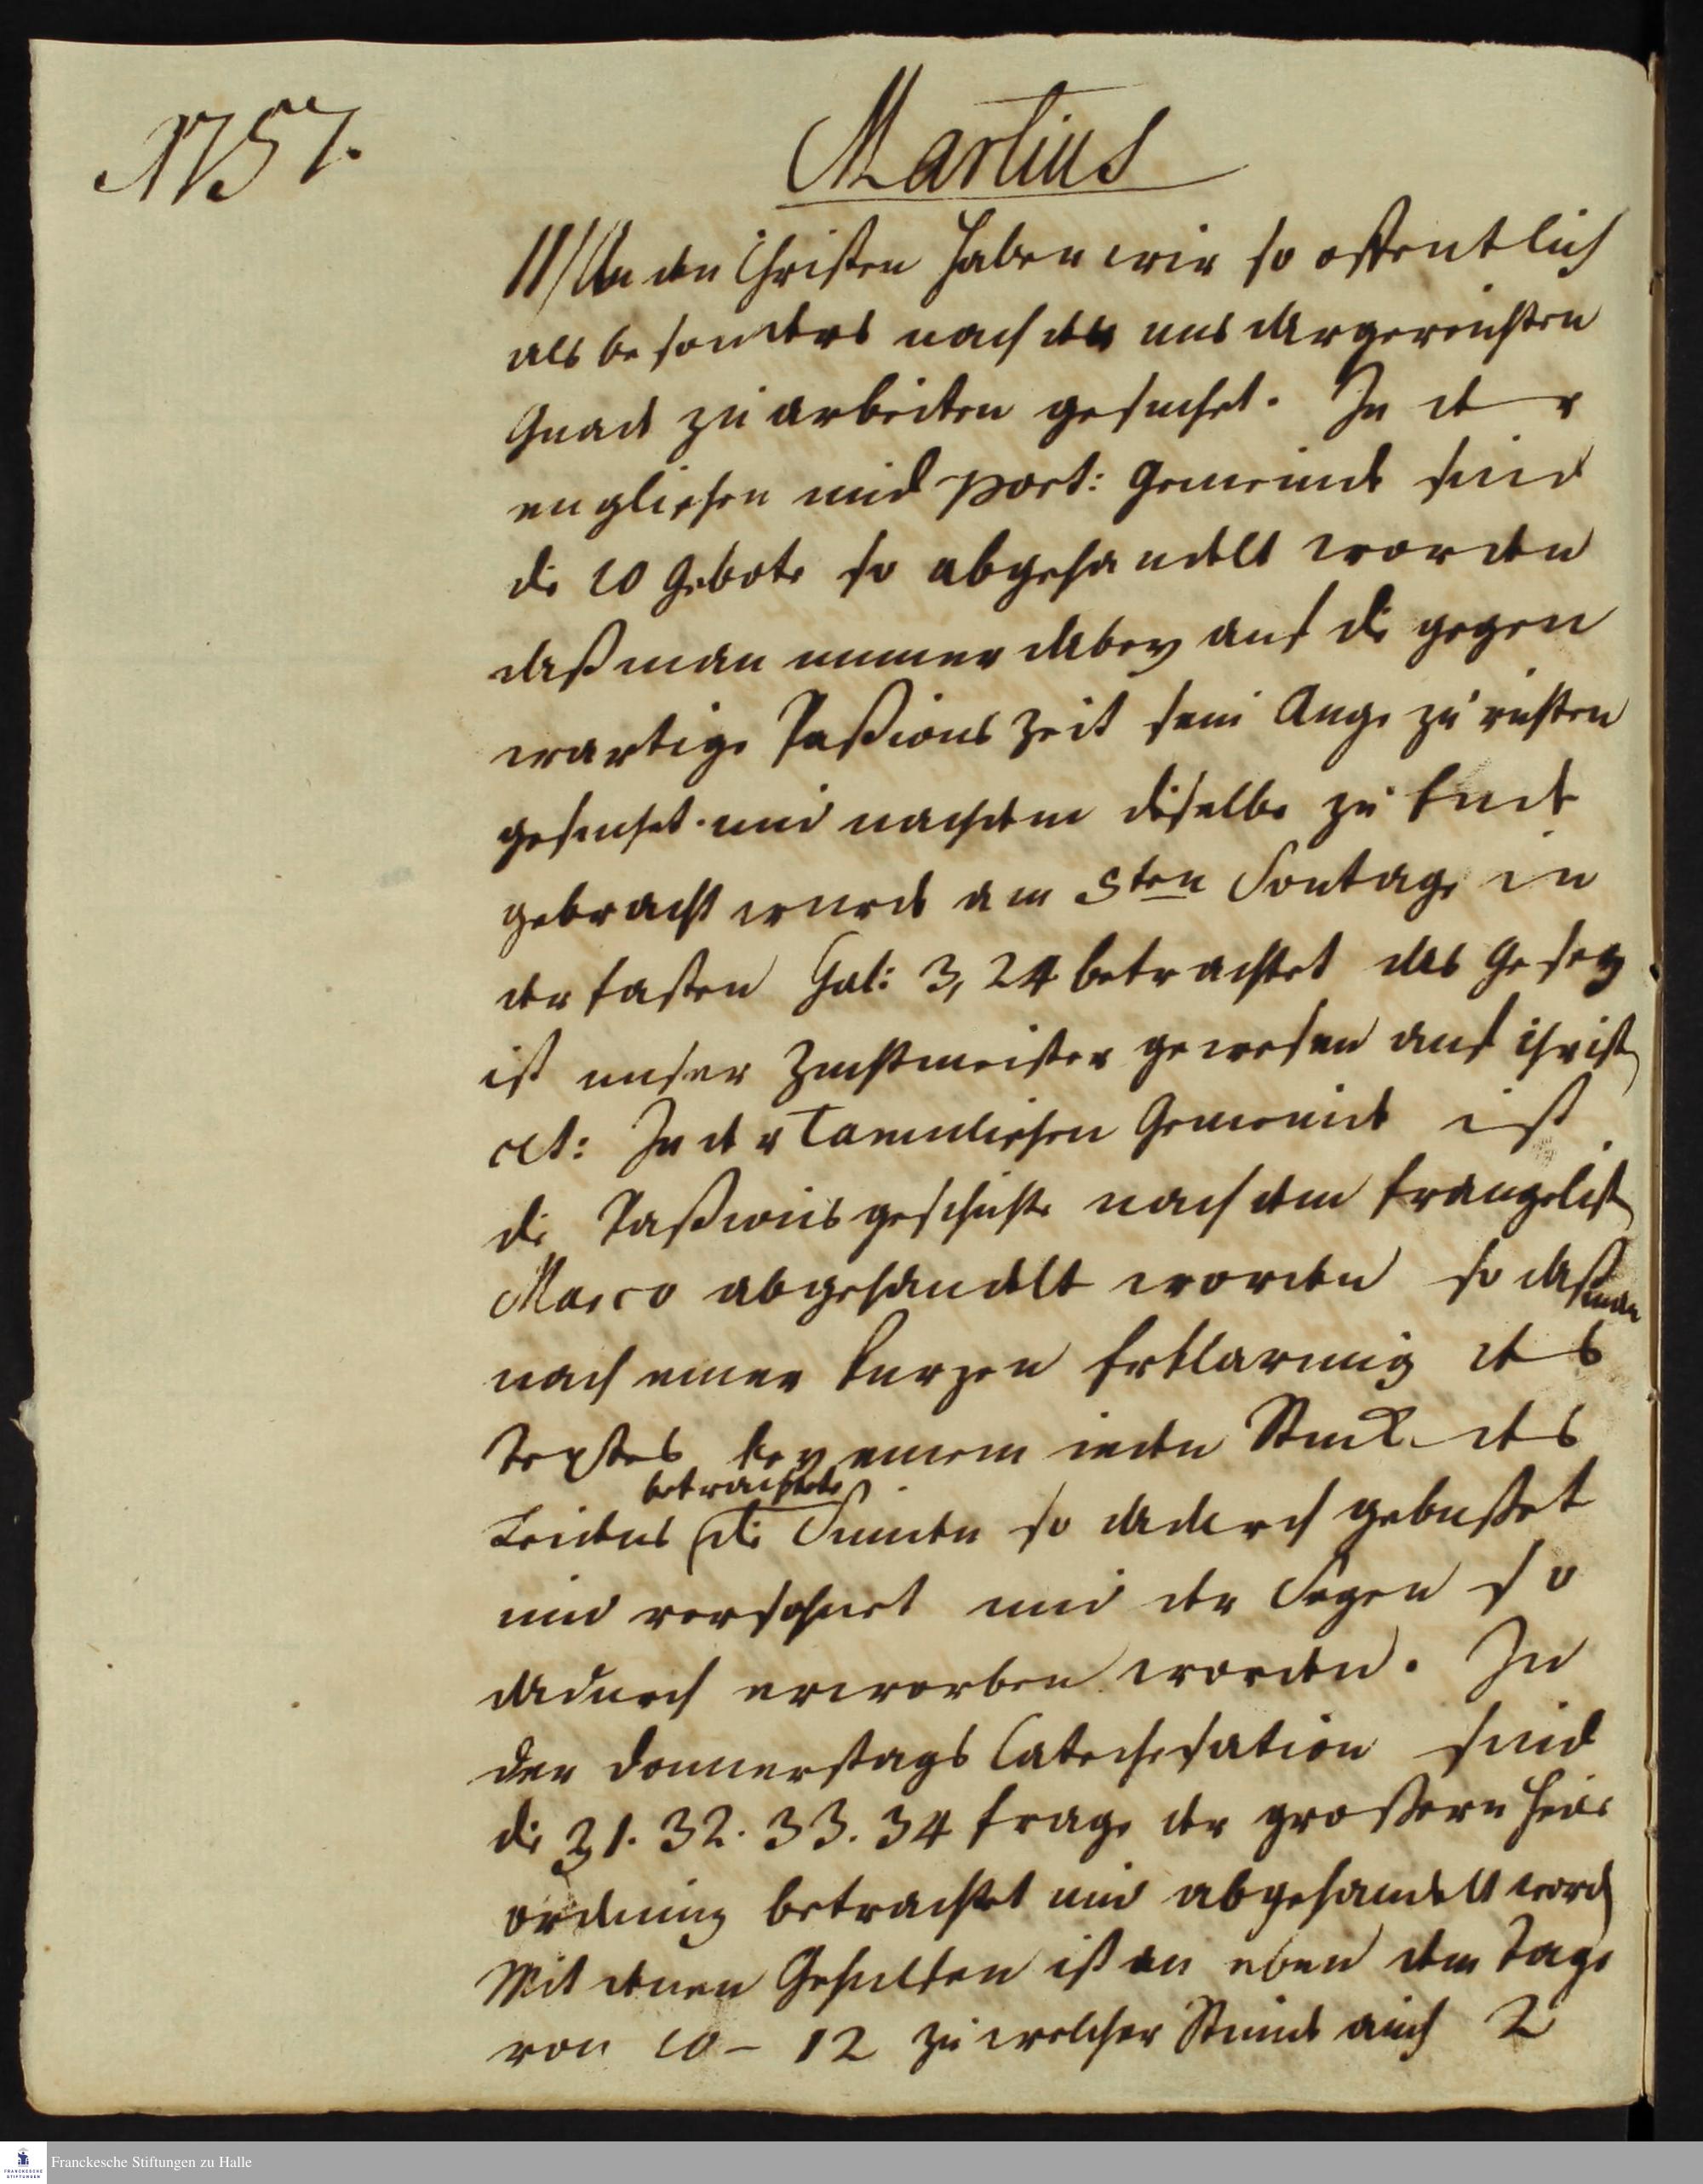 1757.
Martius
11/ An den Christen haben wir so offentlich
als besonders nach der uns dargereichten
Gnade zu arbeiten gesuchet. In der
englischen und port: Gemeinde sind
die 10 Gebote so abgehandelt worden
daß man immer dabey auf die gegen
wartige Paßions Zeit sein Auge zu richten
gesuchet. und nachdem dieselbe zu Ende
gebracht wurde am 5ten Sontage in
der fasten Gal: 3, 24 betrachtet das Gesez
ist unser Zuchtmeister gewesen auf Christ
ect: In der Tamulischen Gemeinde ist
die Paßionsgeschichte nach dem Evangelist
Marco abgehandelt worden so daß man
nach einer kurzen Erklarung des
Textes bey einem ieden Stuck des
Leidens betrachtete die Sunden so dadurch gebusset
und versohnet und der Segen so
dadurch erworben worden. In
der Donnerstags Catechisation sind
die 31. 32. 33. 34 frage der grossern Heils
ordnung betrachtet und abgehandelt word
Mit denen Gehulfen ist an eben dem Tage
von 10 - 12 zu welcher Stunde auch 2
Franckesche Stiftungen zu Halle
FRANCKESCHE
STIFTUNGEN